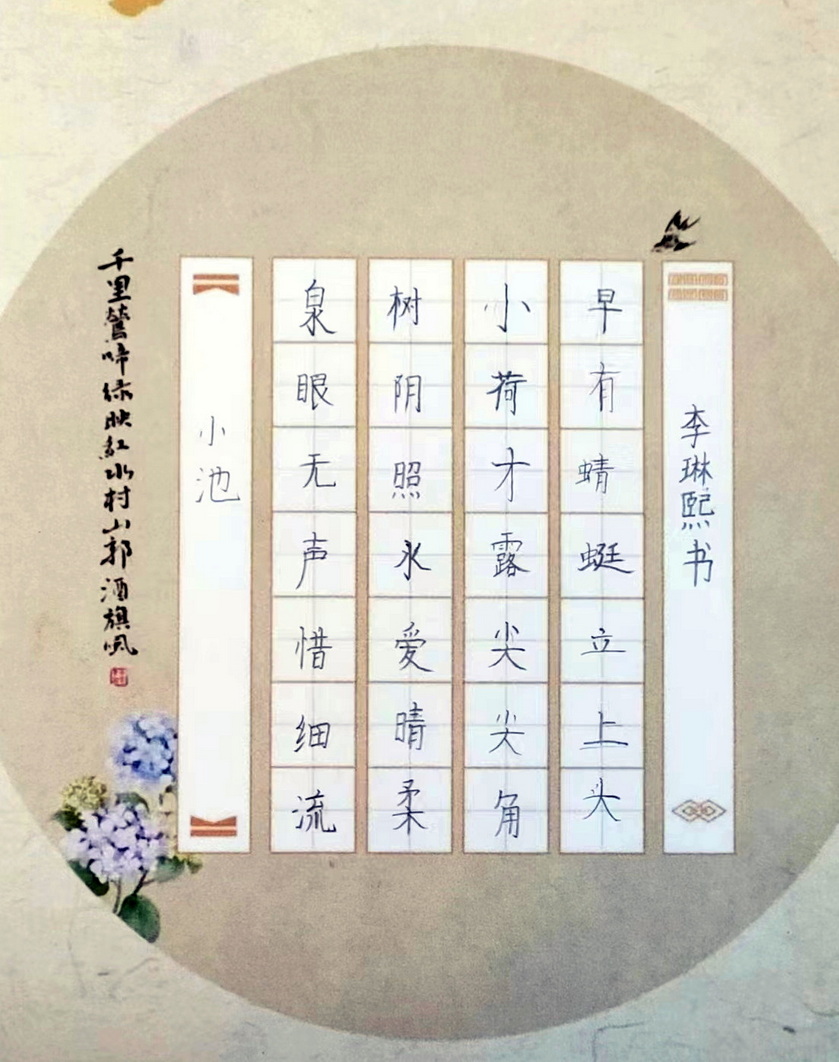 千里鶯啼绿映紅水村山郭酒旗風
小池
泉眼无声惜细流
树阴照水爱晴柔
小荷才露尖尖角
早有蜻蜓立上头
李琳熙书